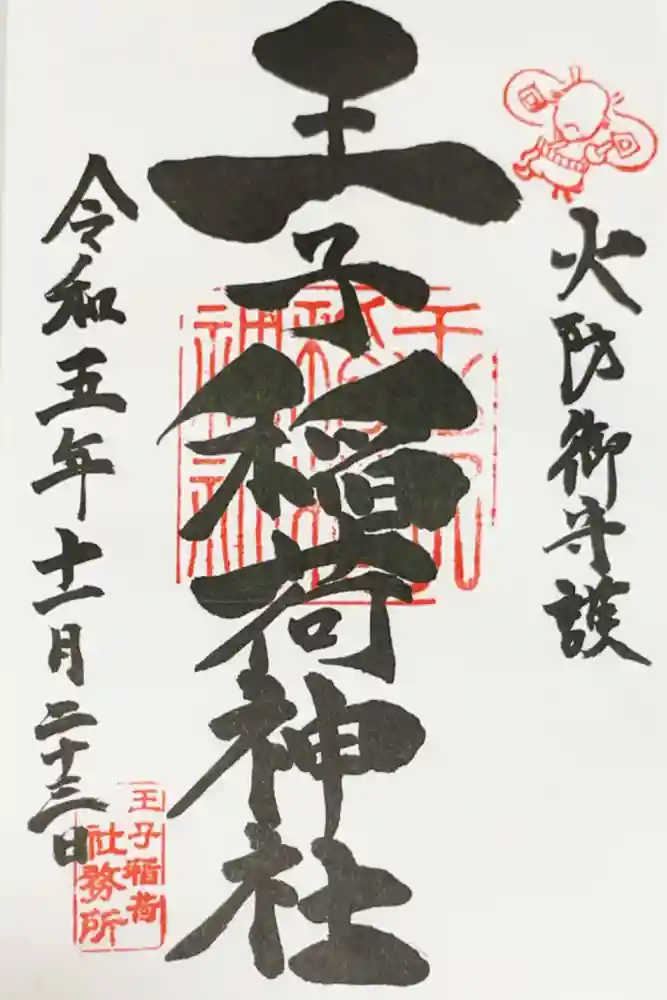 火防御守護
王子稲荷神社
令和五年十一月二十三日
王子稲荷
社務所